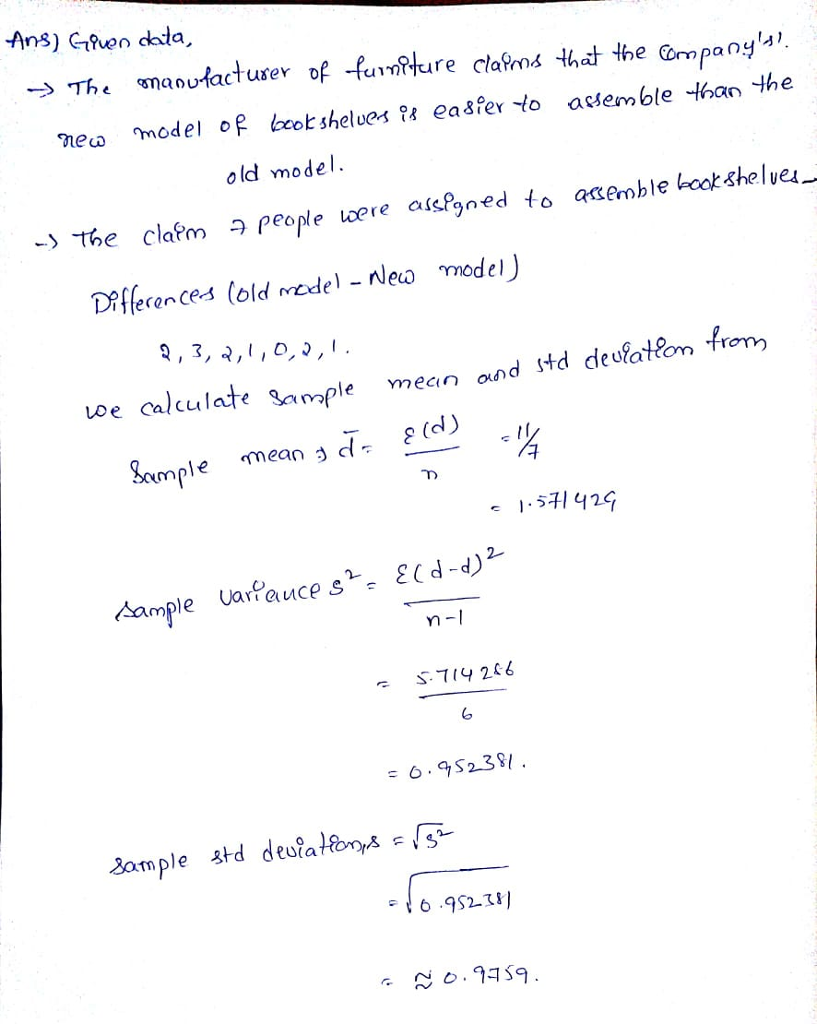 Ans) Given data,
→ The manufacturer of furniture claims that the company's'.
new model of bookshelves is easier to assemble than the
old model.
→ The claim 7 people were assigned to assemble bookshelves
Differences (old model - New model)
2, 3, 2, 1, 0, 2, 1.
we calculate sample mean and std deviation from
Sample mean, d̄ = Σ(d) / n = 11/7
= 1.571429
Sample variance s² = Σ(d-d)² / n-1
= 5.714286 / 6
= 0.952381.
Sample std deviation, s = √s²
= √0.952381
= ≈ 0.9759.